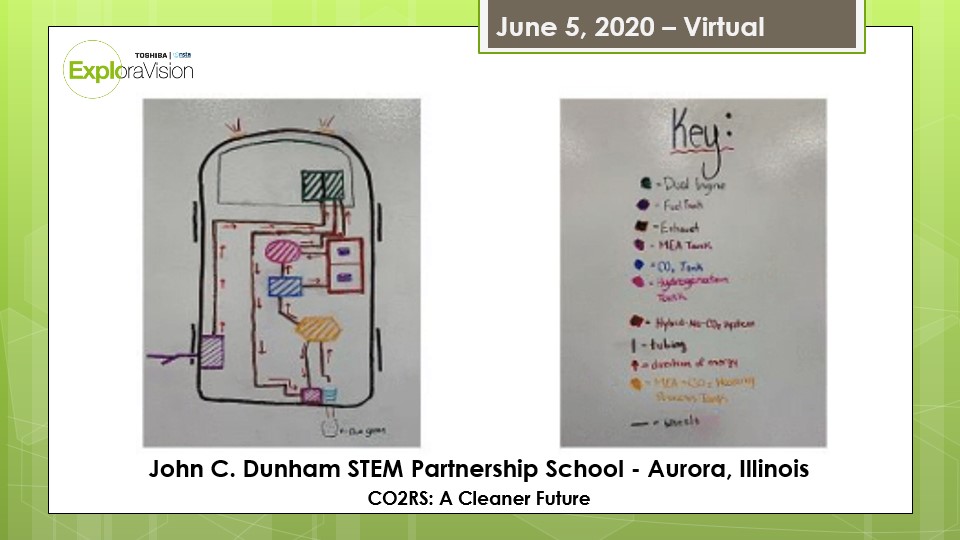 June 5, 2020 – Virtual
TOSHIBA | nsta
ExploraVision
Key:
= Dual Engine
- Fuel Tank
- Exhaust
- MEA Tank
= CO₂ Tank
= Hydrogenation
Tank
= Hybrid-No-CO₂ System
- tubing
= direction of energy
= MEA + CO₂ Heating
Process Tank
= wheels
John C. Dunham STEM Partnership School - Aurora, Illinois
CO2RS: A Cleaner Future